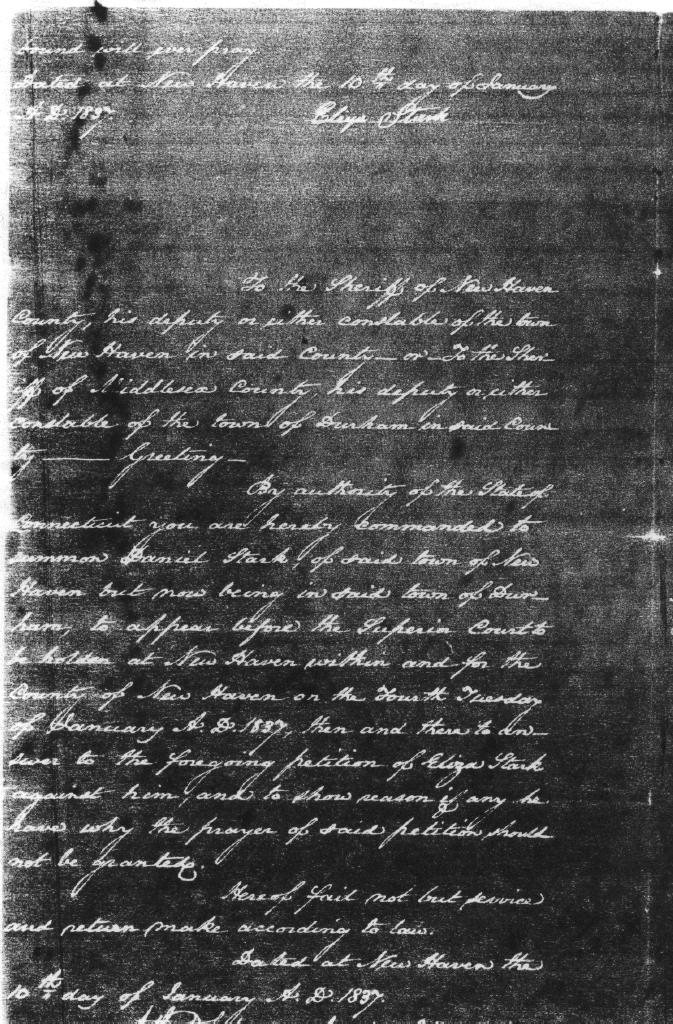 bound will ever pray.
Dated at New Haven the 10th day of January
A. D. 1837 Eliza Stark
To the Sheriff of New Haven
County, his deputy or either constable of the town
of New Haven in said County — or — To the Sher-
iff of Middlesex County, his deputy or either
constable of the town of Durham in said Coun
ty — Greeting —
By authority of the State of
Connecticut you are hereby commanded to
summon Daniel Stark, of said town of New
Haven but now being in said town of Dur-
ham, to appear before the Superior Court to
be holden at New Haven within and for the
County of New Haven on the Fourth Tuesday
of January A. D. 1837, then and there to an-
swer to the foregoing petition of Eliza Stark
against him, and to show reason if any he
have why the prayer of said petition should
not be granted.
Hereof fail not but service
and return make according to law.
Dated at New Haven the
10th day of January A. D. 1837.